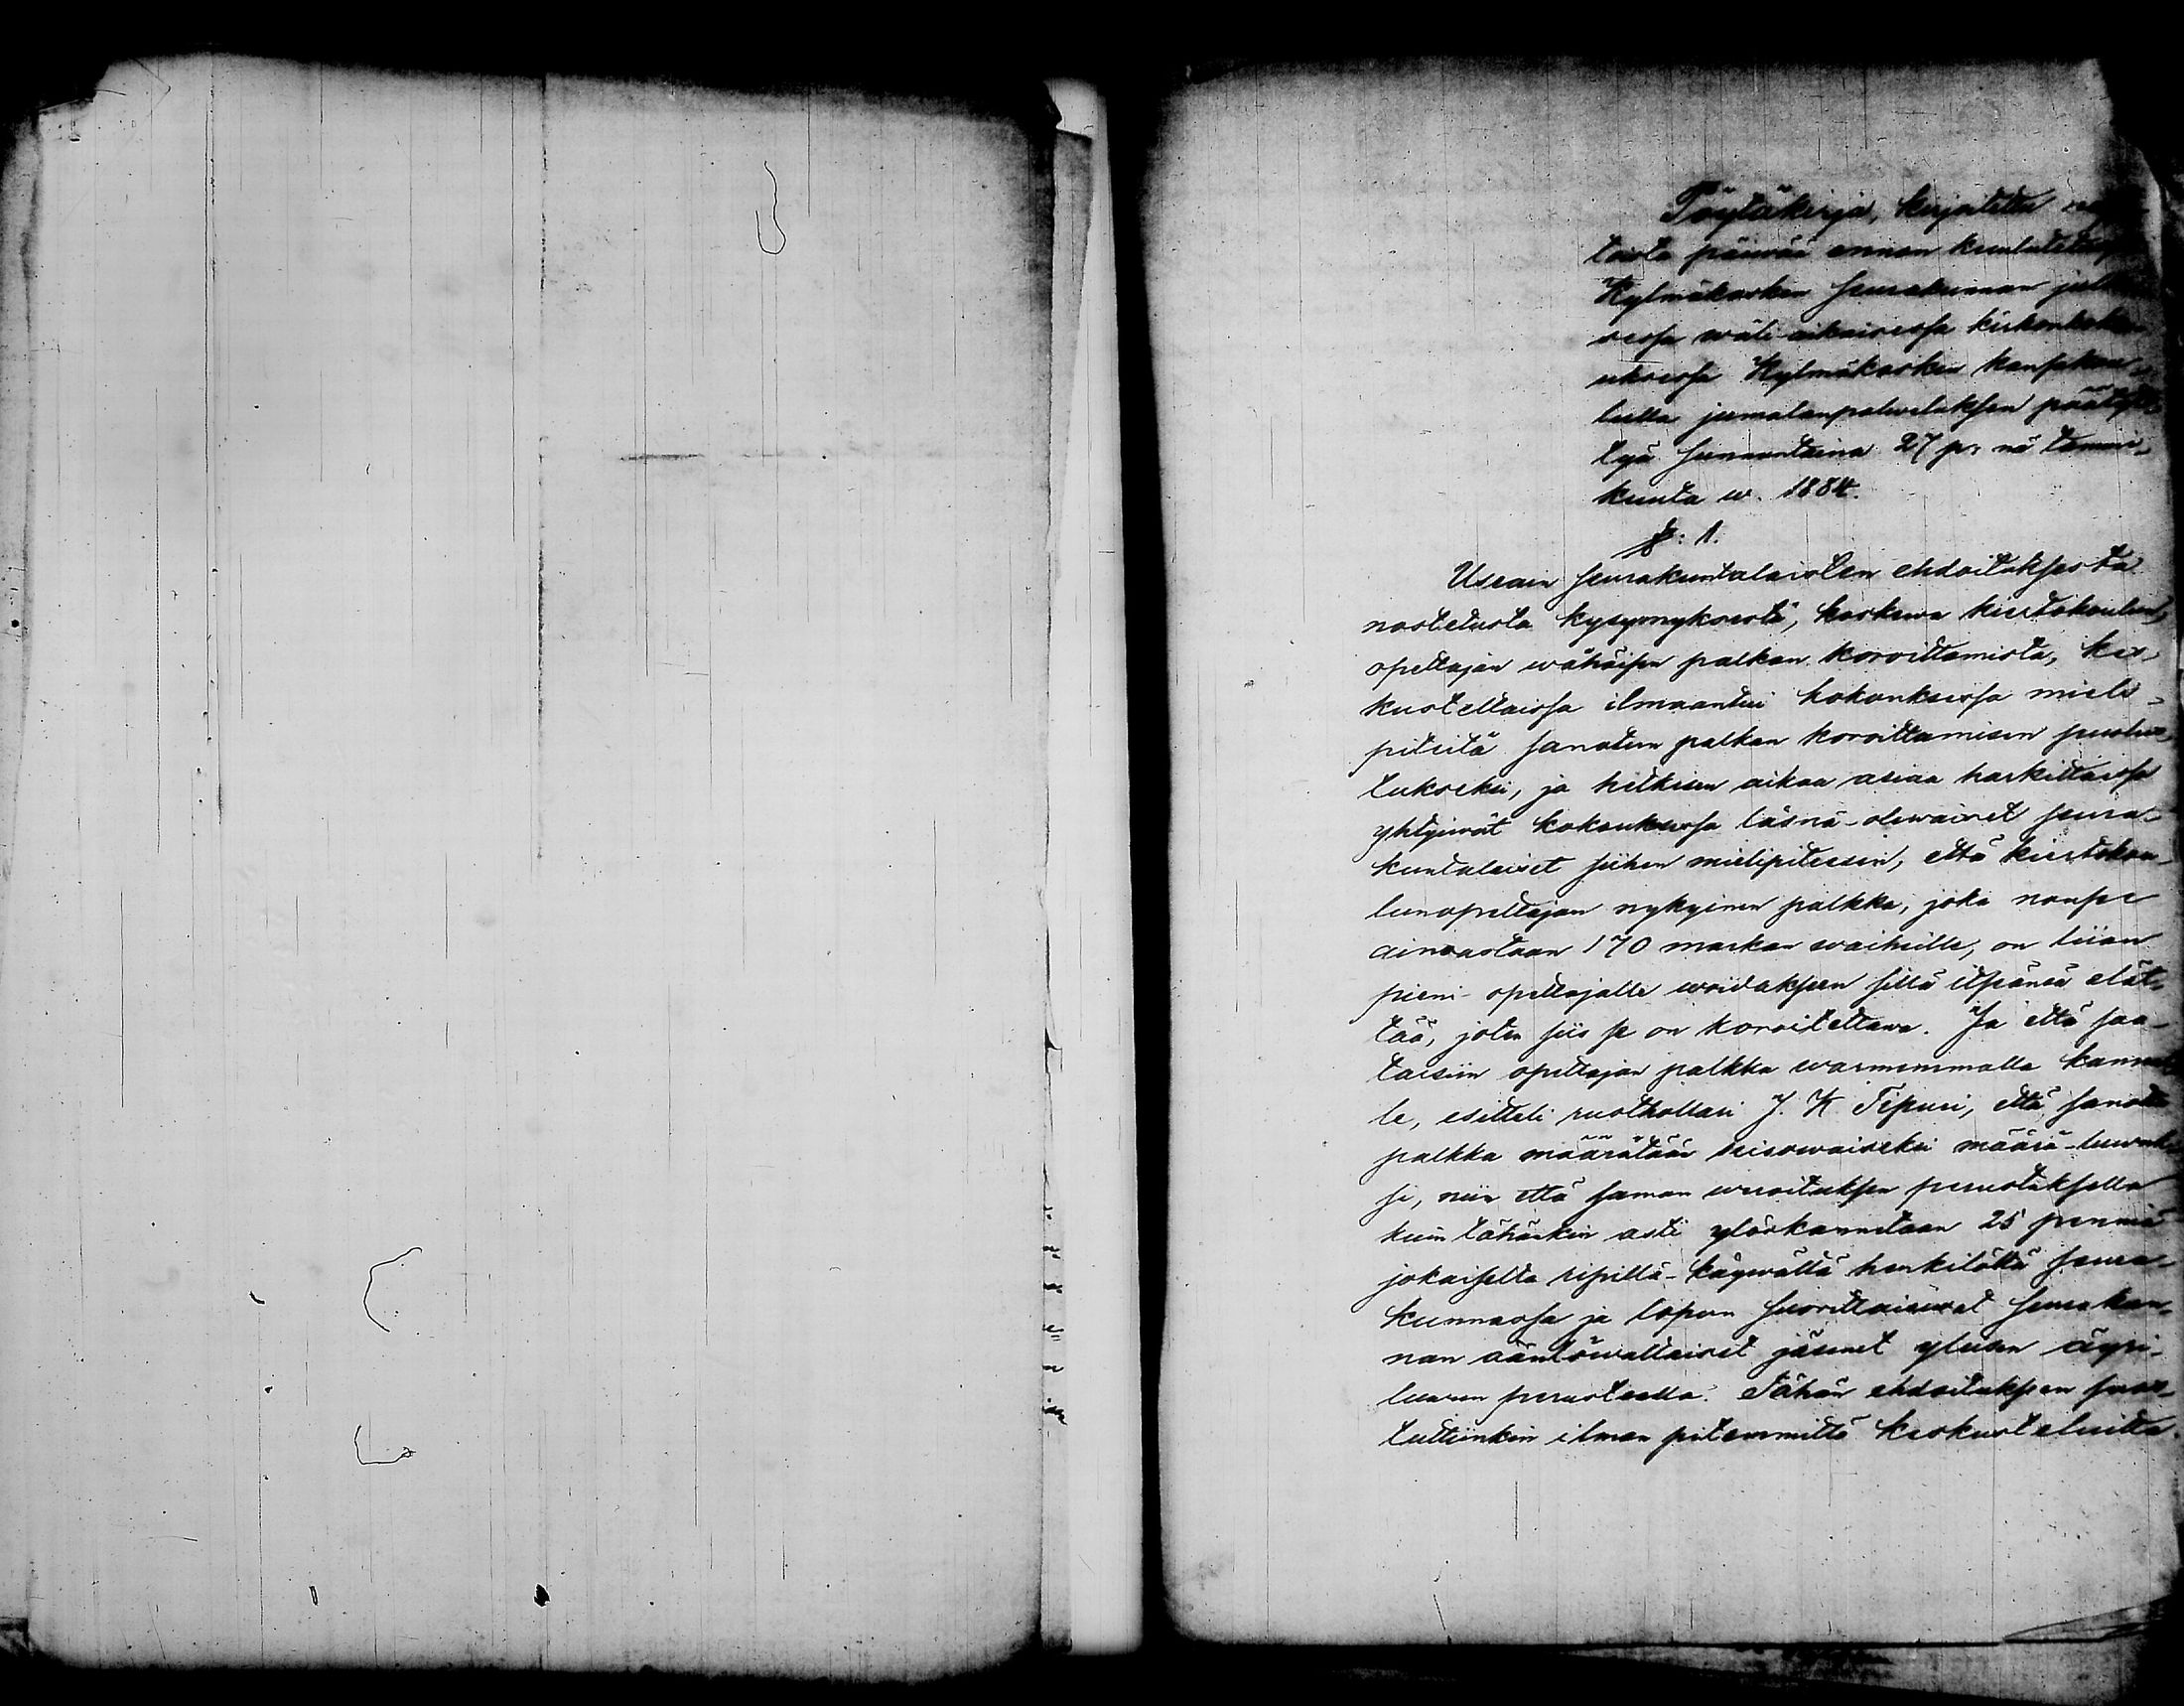 Pöytäkirja, kirjoitettu
toista päiwää ennen kuulutetussa
Kylmäkosken seurakunnan julki
sessa wäli-aikaisessa kirkonkoko
uksessa Kylmäkosken kansakou-
lulla jumalanpalweluksen päätyt-
tyä sunnuntaina 27 p:nä tammi-
kuuta w. 1884.
§: 1.
Useain seurakuntalaisten ehdoituksesta
nostetusta kysymyksestä, koskewa kiertokoulun,
opettajan wähäisen palkan koroittamista, kes-
kusteltaissa ilmaantui kokouksessa mieli-
piteitä sanotun palkan koroittamisen puolus-
tukseksi, ja hetkisen aikaa asiaa harkittaissa
yhtyiwät kokouksessa läsnä-olewaiset seura-
kuntalaiset siihen mielipiteesen, että kiertokou-
lunopettajan nykyinen palkka, joka nousee
ainoastaan 170 markan waiheille, on liian
pieni opettajalle woidakseen sillä itsänsä elät-
tää, joten siis se on koroitettawa. Ja että saa-
taisiin opettajan palkka warmemmalle kannal-
le, esitteli rustholli J. K. Sipuri, että sanottu
palkka määrätään seisowaiseksi määrä-luwuk-
si, niin että saman weroituksen perustuksella
kuin tähänkin asti ylöskannetaan 25 penniä
jokaiselta ripillä-käywältä henkilöltä seura-
kunnassa ja lopun suorittaisiwat seurakun-
nan ääntöwaltaiset jäsenet yleisen äyri-
luwun perusteella. Tähän ehdoitukseen suos-
tuttiinkin ilman pitemmittä keskusteluitta.